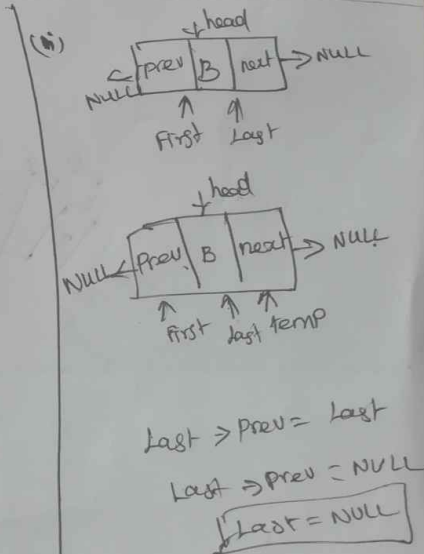 (ii) head
prev B next NULL
NULL
First Last
head
Prev B next NULL
NULL
First Last temp
Last → Prev = Last
Last → prev = NULL
Last = NULL